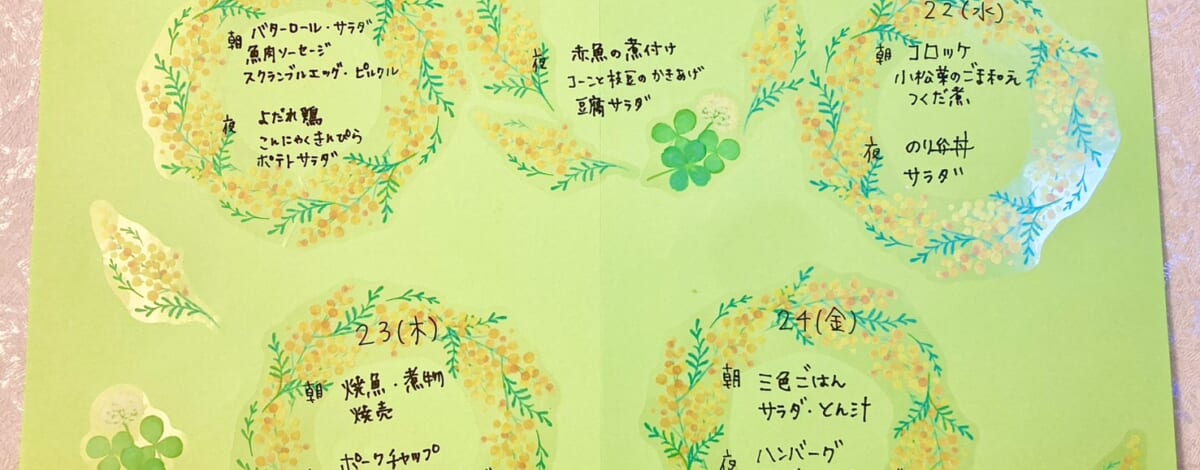 朝 バターロール・サラダ
魚肉ソーセージ
スクランブルエッグ・ピルクル
夜 よだれ鶏
こんにゃくきんぴら
ポテトサラダ
夜 赤魚の煮付け
コーンと枝豆のかきあげ
豆腐サラダ
22(水)
朝 コロッケ
小松菜のごま和え
つくだ煮
夜 のり弁丼
サラダ
23(木)
朝 焼魚・煮物
焼売
ポークチャップ
24(金)
朝 三色ごはん
サラダ・とん汁
夜 ハンバーグ